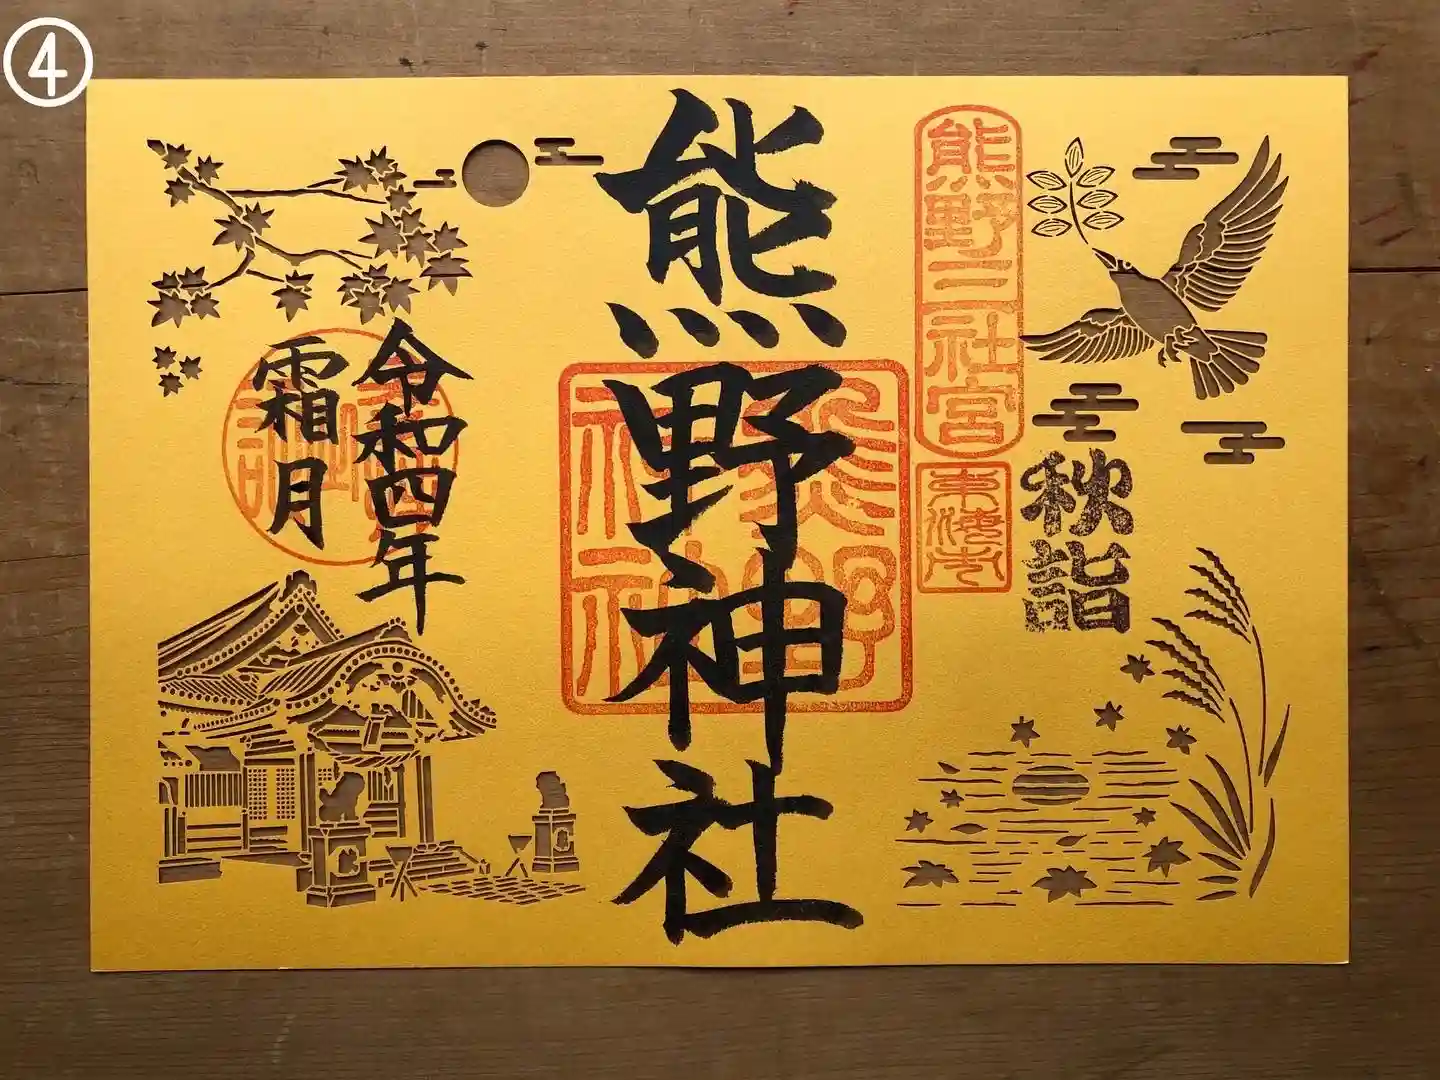 ④
秋詣
熊野三社宮
熊野神社
熊野神社
令和四年
霜月